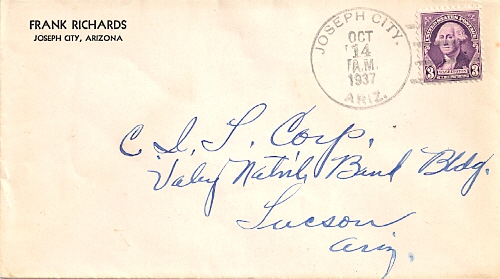 FRANK RICHARDS
JOSEPH CITY, ARIZONA
JOSEPH CITY.
OCT
14
A.M.
1937
ARIZ.
UNITED STATES POSTAGE
3 3
C. I. T. Corp.
Valey Nat'nl. Bank Bldg.
Tucson
Ariz.